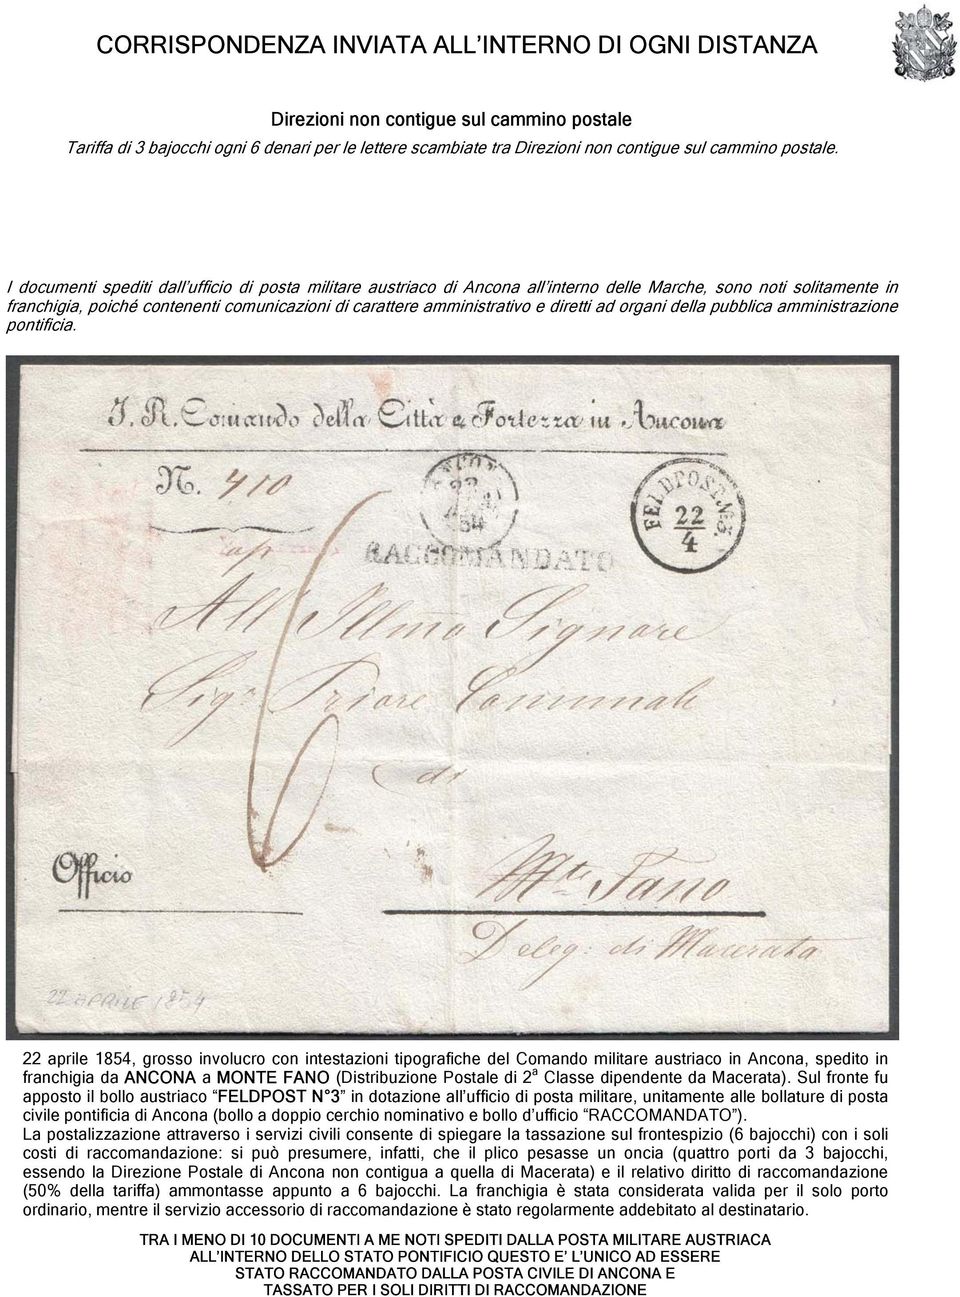 CORRISPONDENZA INVIATA ALL'INTERNO DI OGNI DISTANZA
Direzioni non contigue sul cammino postale
Tariffa di 3 bajocchi ogni 6 denari per le lettere scambiate tra Direzioni non contigue sul cammino postale.
I documenti spediti dall'ufficio di posta militare austriaco di Ancona all'interno delle Marche, sono noti solitamente in
franchigia, poiché contenenti comunicazioni di carattere amministrativo e diretti ad organi della pubblica amministrazione
pontificia.
I. R. Comando della Città e Fortezza in Ancona
N. 410
22
54
FELDPOST N:3.
22
4
RACCOMANDATO
6
All' Illmo Signore
Sigr Priore Comunale
di
Officio
Mte Fano
Deleg: di Macerata
22 APRILE 1854
22 aprile 1854, grosso involucro con intestazioni tipografiche del Comando militare austriaco in Ancona, spedito in
franchigia da ANCONA a MONTE FANO (Distribuzione Postale di 2ª Classe dipendente da Macerata). Sul fronte fu
apposto il bollo austriaco "FELDPOST N°3" in dotazione all'ufficio di posta militare, unitamente alle bollature di posta
civile pontificia di Ancona (bollo a doppio cerchio nominativo e bollo d'ufficio "RACCOMANDATO").
La postalizzazione attraverso i servizi civili consente di spiegare la tassazione sul frontespizio (6 bajocchi) con i soli
costi di raccomandazione: si può presumere, infatti, che il plico pesasse un oncia (quattro porti da 3 bajocchi,
essendo la Direzione Postale di Ancona non contigua a quella di Macerata) e il relativo diritto di raccomandazione
(50% della tariffa) ammontasse appunto a 6 bajocchi. La franchigia è stata considerata valida per il solo porto
ordinario, mentre il servizio accessorio di raccomandazione è stato regolarmente addebitato al destinatario.
TRA I MENO DI 10 DOCUMENTI A ME NOTI SPEDITI DALLA POSTA MILITARE AUSTRIACA
ALL'INTERNO DELLO STATO PONTIFICIO QUESTO E' L'UNICO AD ESSERE
STATO RACCOMANDATO DALLA POSTA CIVILE DI ANCONA E
TASSATO PER I SOLI DIRITTI DI RACCOMANDAZIONE